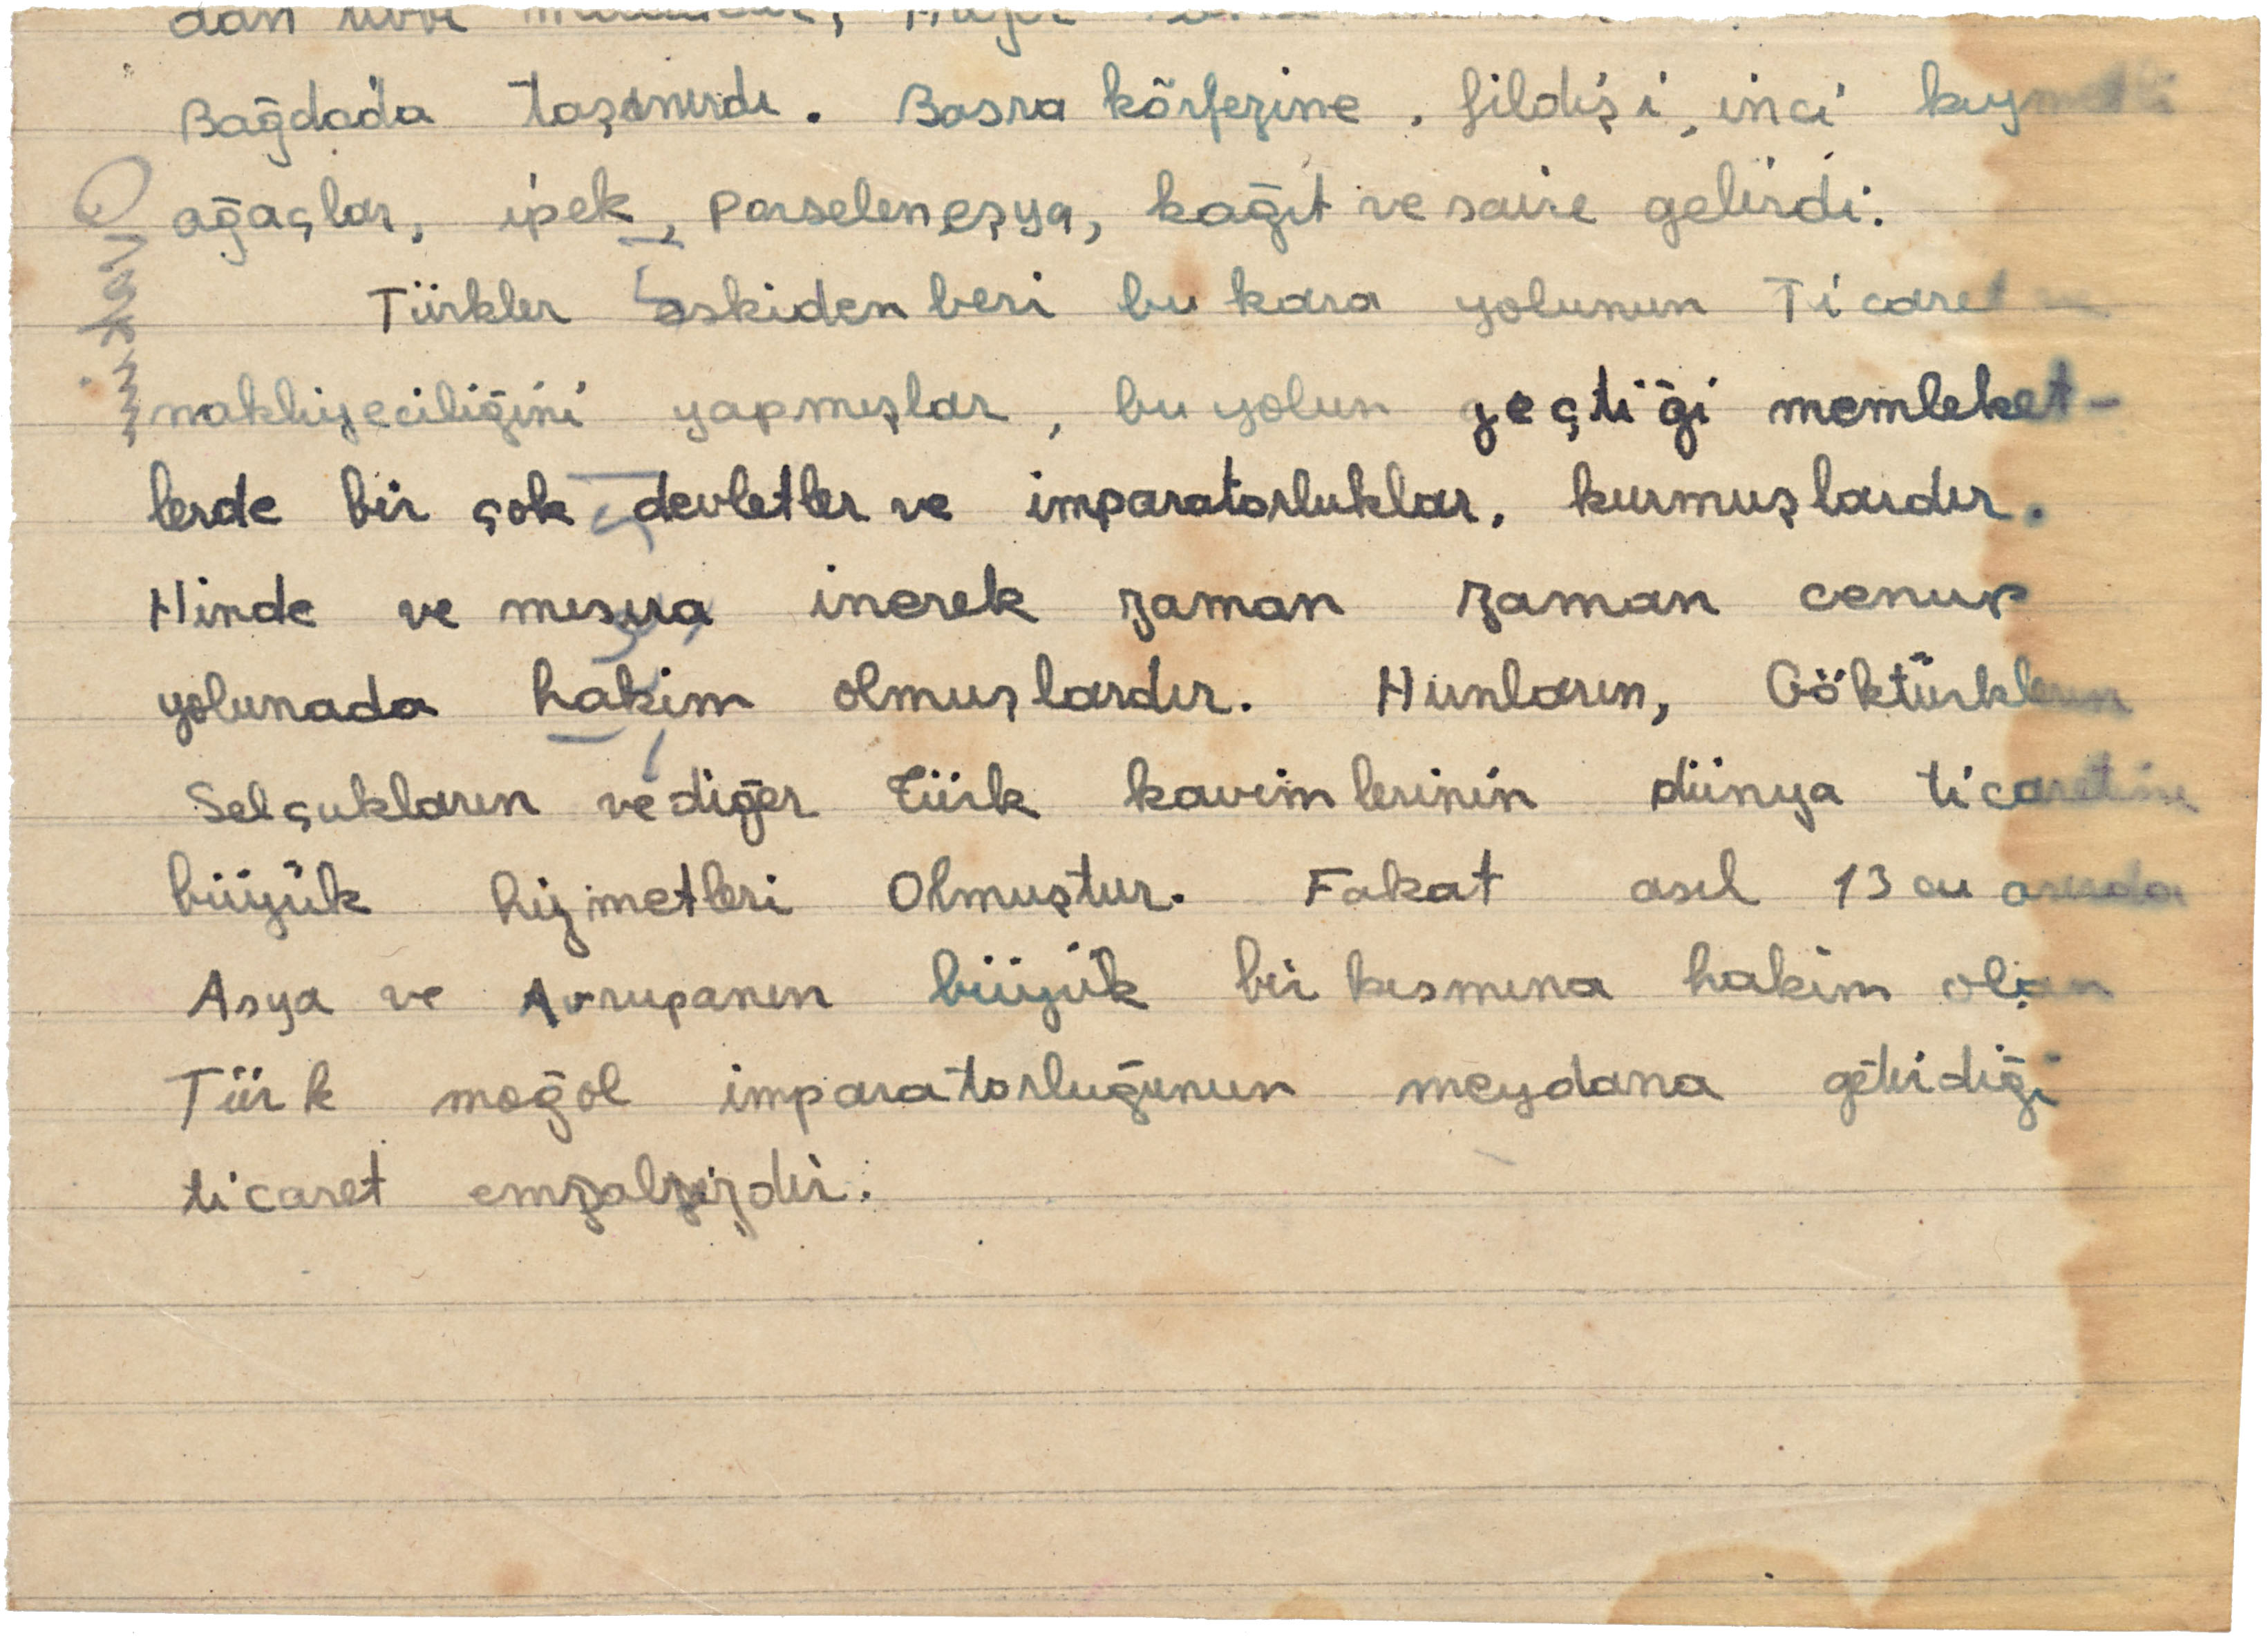 dan
Bağdada taşınırdı. Basra körfezine. fildişi, inci
ağaçlar, ipek, porselen eşya, kağıt ve saire gelirdi.
Türkler eskiden beri bu kara yolunun Ticaret ve
nakliyeciliğini yapmışlar, bu yolun geçtiği memleket-
lerde bir çok devletler ve imparatorluklar. kurmuşlardır.
Hinde ve mısıra inerek zaman zaman cenup
yolunada hakim olmuşlardır. Hunların, Göktürklerin
Selçukların ve diğer Türk kavimlerinin dünya ticaretine
büyük hizmetleri Olmuştur. Fakat asıl 13 cu asırda
Asya ve Avrupanın büyük bir kısmına hakim olan
Türk moğol imparatorluğunun meydana getirdiği
ticaret emzalsizdir.